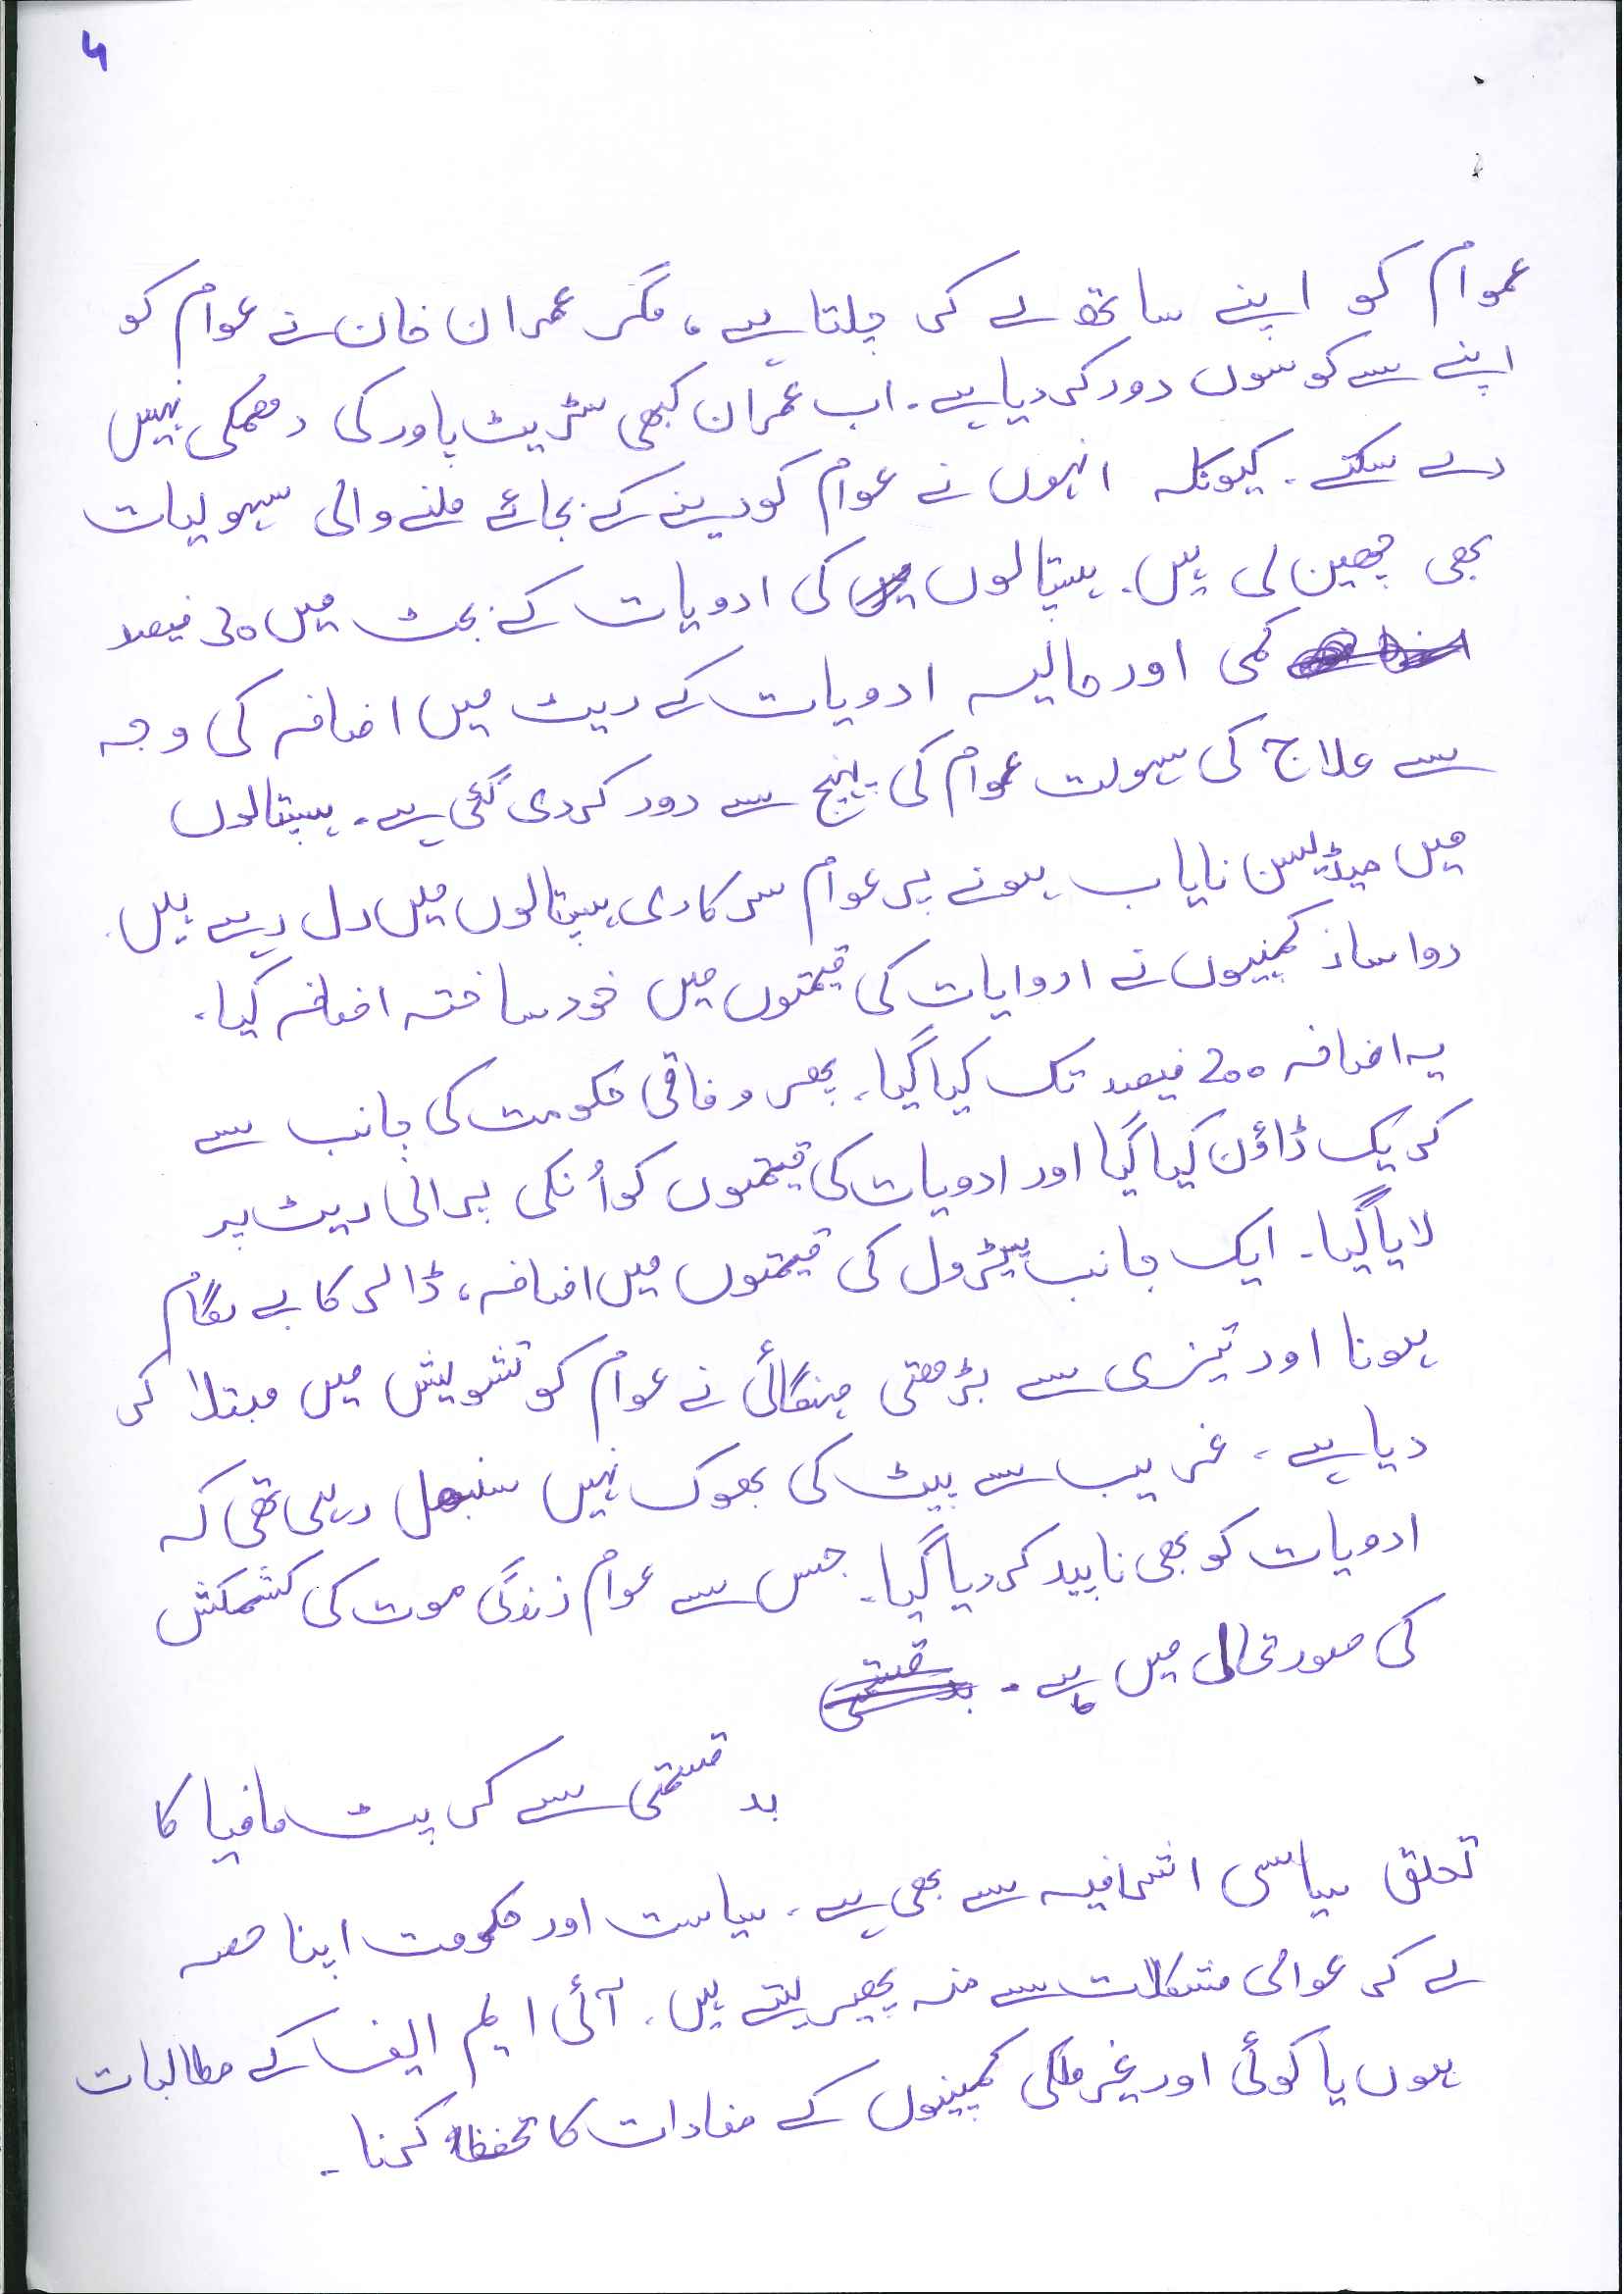 ۵
عوام کو اپنے ساتھ لے کر چلتا ہے، مگر عمران خان نے عوام کو
اپنے سے کوسوں دور کر دیا ہے۔ اب عمران کبھی سٹریٹ پاور کی دھمکی نہیں
دے سکتے۔ کیونکہ انہوں نے عوام کو دینے کے بجائے ملنے والی سہولیات
بھی چھین لی ہیں۔ ہسپتالوں کی ادویات کے بجٹ میں 30 فیصد
کمی اور حالیہ ادویات کے ریٹ میں اضافہ کی وجہ
سے علاج کی سہولت عوام کی پہنچ سے دور کر دی گئی ہے۔ ہسپتالوں
میں میڈیسن نایاب ہونے پر عوام سرکاری ہسپتالوں میں رل رہے ہیں۔
دوا ساز کمپنیوں نے ادوایات کی قیمتوں میں خود ساختہ اضافہ کیا۔
یہ اضافہ 200 فیصد تک کیا گیا۔ پھر وفاقی حکومت کی جانب سے
کریک ڈاؤن کیا گیا اور ادویات کی قیمتوں کو اُنکی پرانی ریٹ پر
لایا گیا۔ ایک جانب پیٹرول کی قیمتوں میں اضافہ، ڈالر کا بے لگام
ہونا اور تیزی سے بڑھتی مہنگائی نے عوام کو تشویش میں مبتلا کر
دیا ہے۔ غریب سے پیٹ کی بھوک نہیں سنبھل رہی تھی کہ
ادویات کو بھی ناپید کر دیا گیا۔ جس سے عوام زندگی موت کی کشمکش
کی صورتحال میں ہے۔ بدقسمتی
بدقسمتی سے کرپٹ مافیا کا
تعلق سیاسی اشرافیہ سے بھی ہے۔ سیاست اور حکومت اپنا حصہ
لے کر عوامی مشکلات سے منہ پھیر لیتے ہیں۔ آئی ایم ایف کے مطالبات
ہوں یا کوئی اور غیر ملکی کمپینوں کے مفادات کا تحفظ کرنا۔